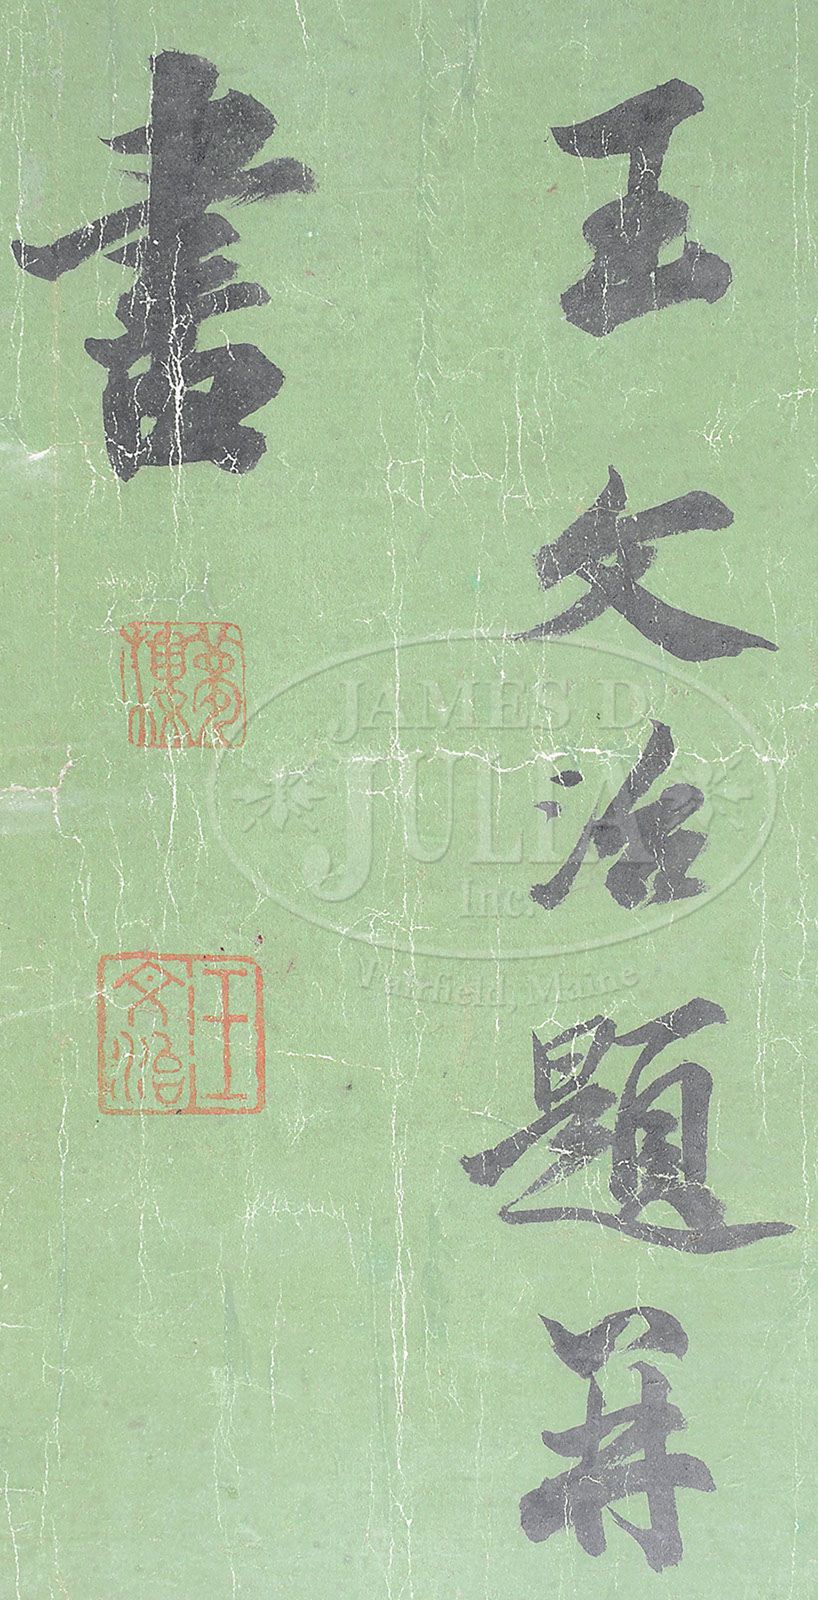 王文治題并
書
夢樓
王文治
JAMES D.
JULIA
Inc.
Fairfield, Maine